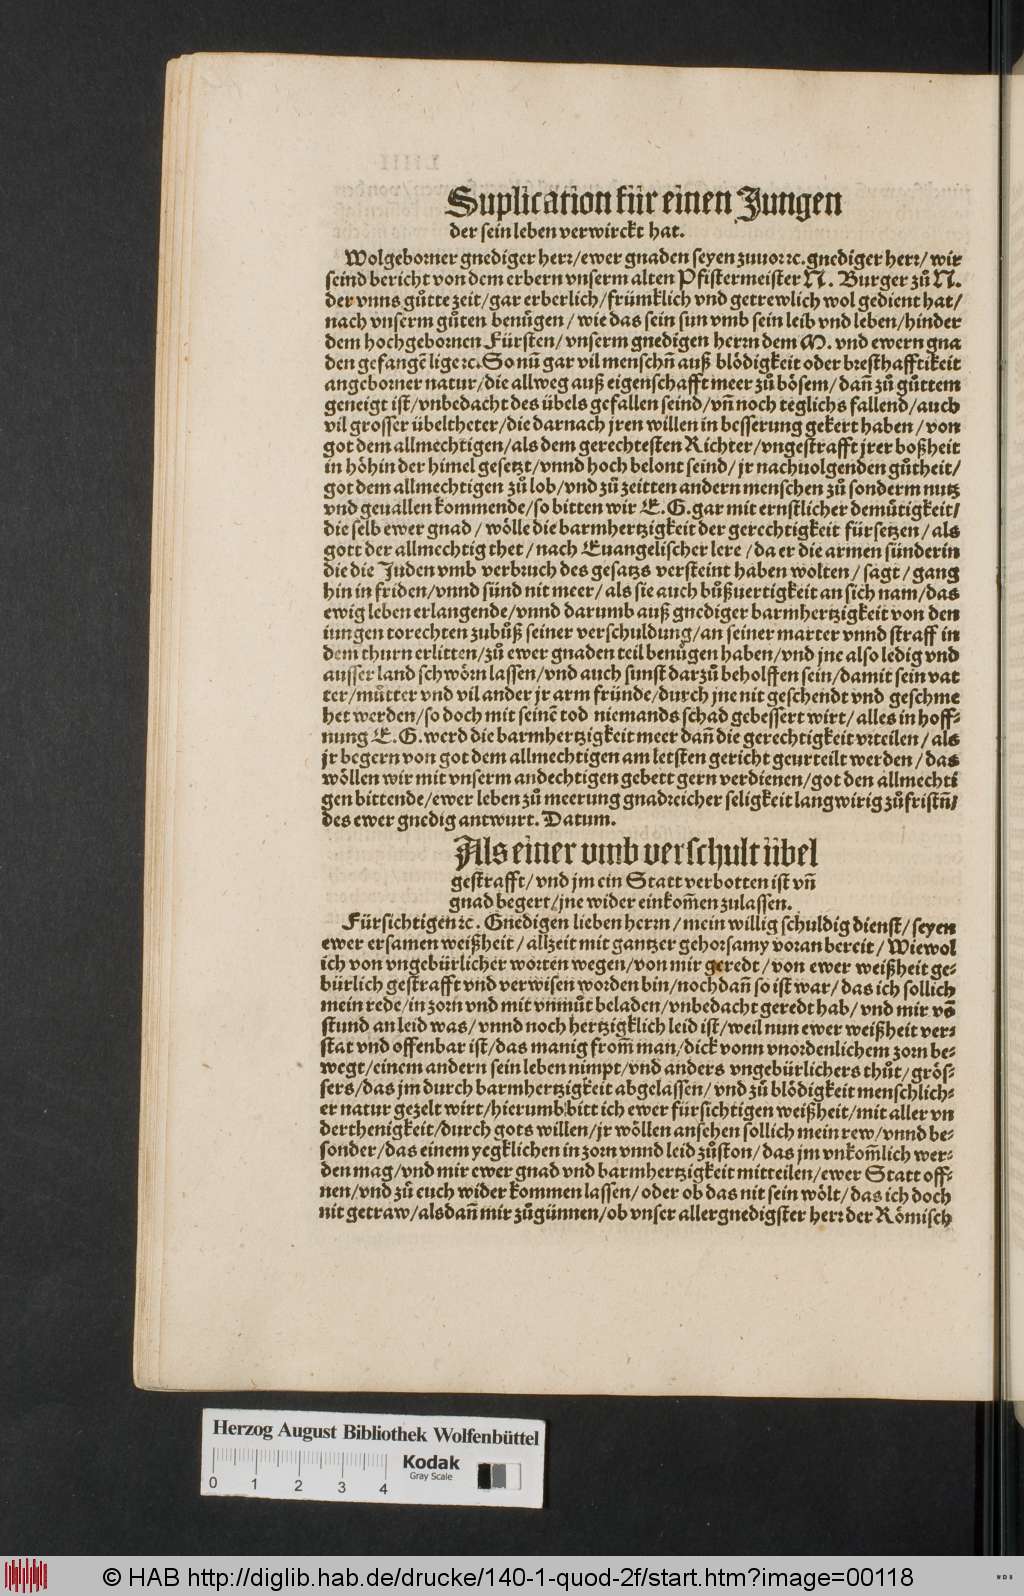 Suplication für einen Jungen
der sein leben verwirckt hat.
Wolgeborner gnediger herr/ewer gnaden seyen zuuor ꝛc.gnediger herr/ wir
seind bericht von dem erbern vnserm alten Pfistermeister N. Burger zů N.
der vnns gůtte zeit/gar erberlich/frümklich vnd getrewlich wol gedient hat/
nach vnserm gůten benůgen/wie das sein sun vmb sein leib vnd leben/hinder
dem hochgebornen Fürsten/vnserm gnedigen herrn dem M. vnd ewern gna
den gefangē lige ꝛc. So nū gar vil menschn̄ auß blödigkeit oder bresthafftikeit
angeborner natur/die allweg auß eigenschafft meer zů bösem/dan̄ zů gůttem
geneigt ist/vnbedacht des übels gefallen seind/vn̄ noch teglichs fallend/auch
vil grosser übeltheter/die darnach jren willen in besserung gekert haben/von
got dem allmechtigen/als dem gerechtesten Richter/vngestrafft jrer boßheit
in höhin der himel gesetzt/vnnd hoch belont seind/jr nachuolgenden gůtheit/
got dem allmechtigen zů lob/vnd zů zeitten andern menschen zů sonderm nutz
vnd geuallen kommende/so bitten wir E. G. gar mit ernstlicher demůtigkeit/
die selb ewer gnad/wölle die barmhertzigkeit der gerechtigkeit fürsetzen/als
gott der allmechtig thet/nach Euangelischer lere/da er die armen sünderin
die die Juden vmb verbruch des gesatzs versteint haben wolten/sagt/gang
hin in friden/vnnd sünd nit meer/als sie auch bůßuertigkeit an sich nam/das
ewig leben erlangende/vnnd darumb auß gnediger barmhertzigkeit von den
iungen torechten zubůß seiner verschuldung/an seiner marter vnnd straff in
dem thurn erlitten/zů ewer gnaden teil benůgen haben/vnd jne also ledig vnd
ausser land schwörn lassen/vnd auch sunst darzů beholffen sein/damit sein vat
ter/můtter vnd vil ander jr arm fründe/durch jne nit geschendt vnd geschme
het werden/so doch mit seinē tod niemands schad gebessert wirt/alles in hoff-
nung E. G. werd die barmhertzigkeit meer dan̄ die gerechtigkeit vrteilen/als
jr begern von got dem allmechtigen am letsten gericht geurteilt werden/das
wöllen wir mit vnserm andechtigen gebett gern verdienen/got den allmechti
gen bittende/ewer leben zů meerung gnadreicher seligkeit langwirig zůfristn̄/
des ewer gnedig antwurt. Datum.
Als einer vmb verschult übel
gestrafft/vnd jm ein Statt verbotten ist vn̄
gnad begert/jne wider einkom̄en zulassen.
Fürsichtigen ꝛc. Gnedigen lieben herrn/mein willig schuldig dienst/seyen
ewer ersamen weißheit/allzeit mit gantzer gehorsamy voran bereit/Wiewol
ich von vngebürlicher worten wegen/von mir geredt/von ewer weißheit ge-
bürlich gestrafft vnd verwisen worden bin/noch dan̄ so ist war/das ich sollich
mein rede/in zorn vnd mit vnmůt beladen/vnbedacht geredt hab/vnd mir vō
stund an leid was/vnnd noch hertzigklich leid ist/weil nun ewer weißheit ver-
stat vnd offenbar ist/das manig from̄ man/dick vonn vnordenlichem zorn be-
wegt/einem andern sein leben nimpt/vnd anders vngebürlichers thůt/grös-
sers/das jm durch barmhertzigkeit abgelassen/vnd zů blödigkeit menschlich-
er natur gezelt wirt/hierumb bitt ich ewer fürsichtigen weißheit/mit aller vn
derthenigkeit/durch gots willen/jr wöllen ansehen sollich mein rew/vnnd be-
sonder/das einem yegklichen in zorn vnnd leid zůston/das jm vnkom̄lich wer-
den mag/vnd mir ewer gnad vnd barmhertzigkeit mitteilen/ewer Statt öff-
nen/vnd zů euch wider kommen lassen/oder ob das nit sein wölt/das ich doch
nit getraw/alsdan̄ mir zůgünnen/ob vnser allergnedigster herr der Römisch
Herzog August Bibliothek Wolfenbüttel
Kodak
Gray Scale
0 1 2 3 4
© HAB http://diglib.hab.de/drucke/140-1-quod-2f/start.htm?image=00118